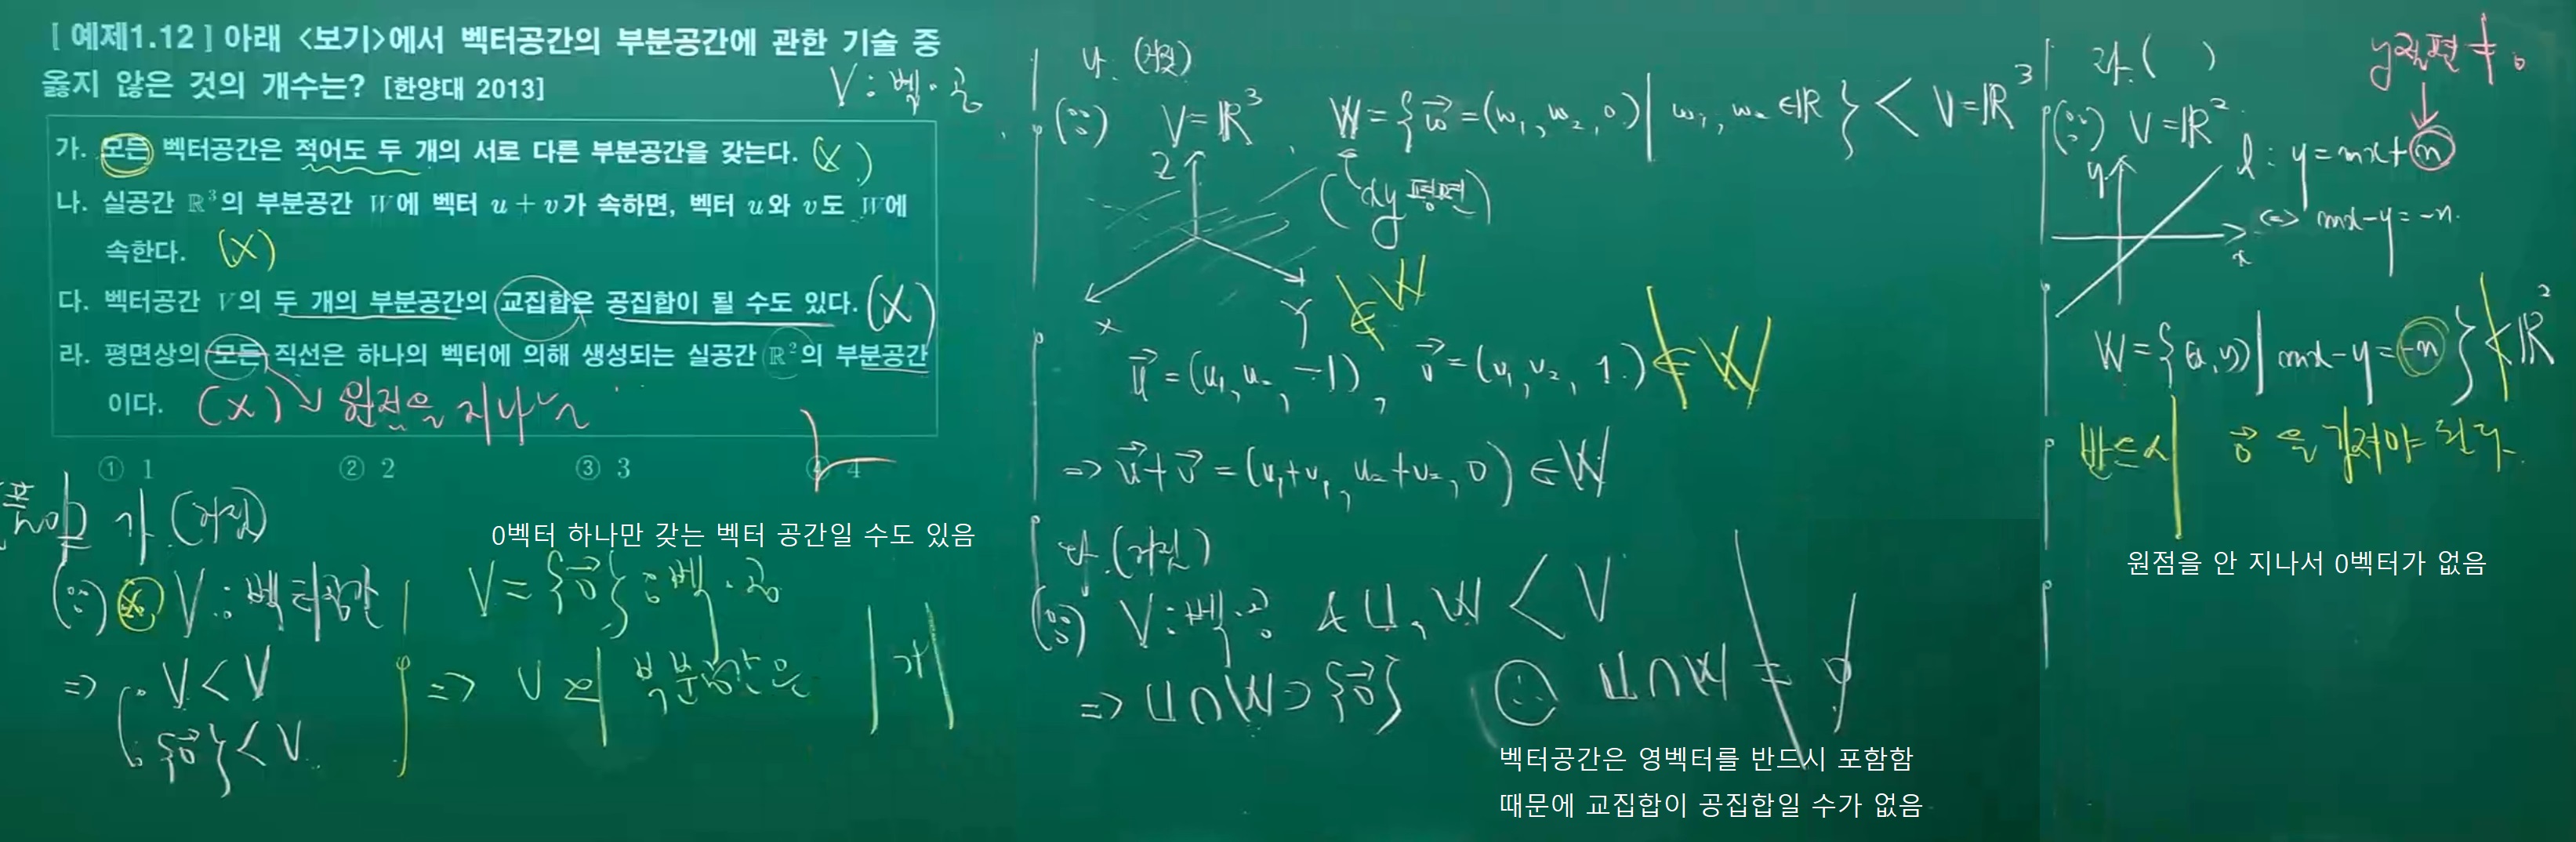 [ 예제1.12 ] 아래 <보기>에서 벡터공간의 부분공간에 관한 기술 중
옳지 않은 것의 개수는? [한양대 2013]
V : 벡.공
가. 모든 벡터공간은 적어도 두 개의 서로 다른 부분공간을 갖는다. (X)
나. 실공간 ℝ³의 부분공간 W에 벡터 u + v가 속하면, 벡터 u와 v도 W에
속한다. (X)
다. 벡터공간 V의 두 개의 부분공간의 교집합은 공집합이 될 수도 있다. (X)
라. 평면상의 모든 직선은 하나의 벡터에 의해 생성되는 실공간 ℝ²의 부분공간
이다. (X) 원점을 지나는
① 1 ② 2 ③ 3 ④ 4
가 (거짓)
0벡터 하나만 갖는 벡터 공간일 수도 있음
(∵) V : 벡터공간
⇒ V < V
{0⃗} < V
V = {0⃗} : 벡.공
⇒ V의 부분공간은 1개
나. (거짓)
(∵) V = ℝ³ W = {w⃗ = (w₁, w₂, 0) | w₁, w₂ ∈ ℝ} < V = ℝ³
(xy 평면)
Z
X
Y
u⃗ = (u₁, u₂, -1) ∉ W, v⃗ = (v₁, v₂, 1) ∉ W
⇒ u⃗ + v⃗ = (u₁+v₁, u₂+v₂, 0) ∈ W
다. (거짓)
(∵) V : 벡.공 & U, W < V
⇒ U ∩ W ⊃ {0⃗} ∴ U ∩ W ≠ ∅
벡터공간은 영벡터를 반드시 포함함
때문에 교집합이 공집합일 수가 없음
라. ( )
y절편 ≠ 0
(∵) V = ℝ²
l : y = mx + n
⇔ mx - y = -n.
y
x
W = {(x, y) | mx - y = -n} ≮ ℝ²
반드시 0⃗을 가져야 된다.
원점을 안 지나서 0벡터가 없음